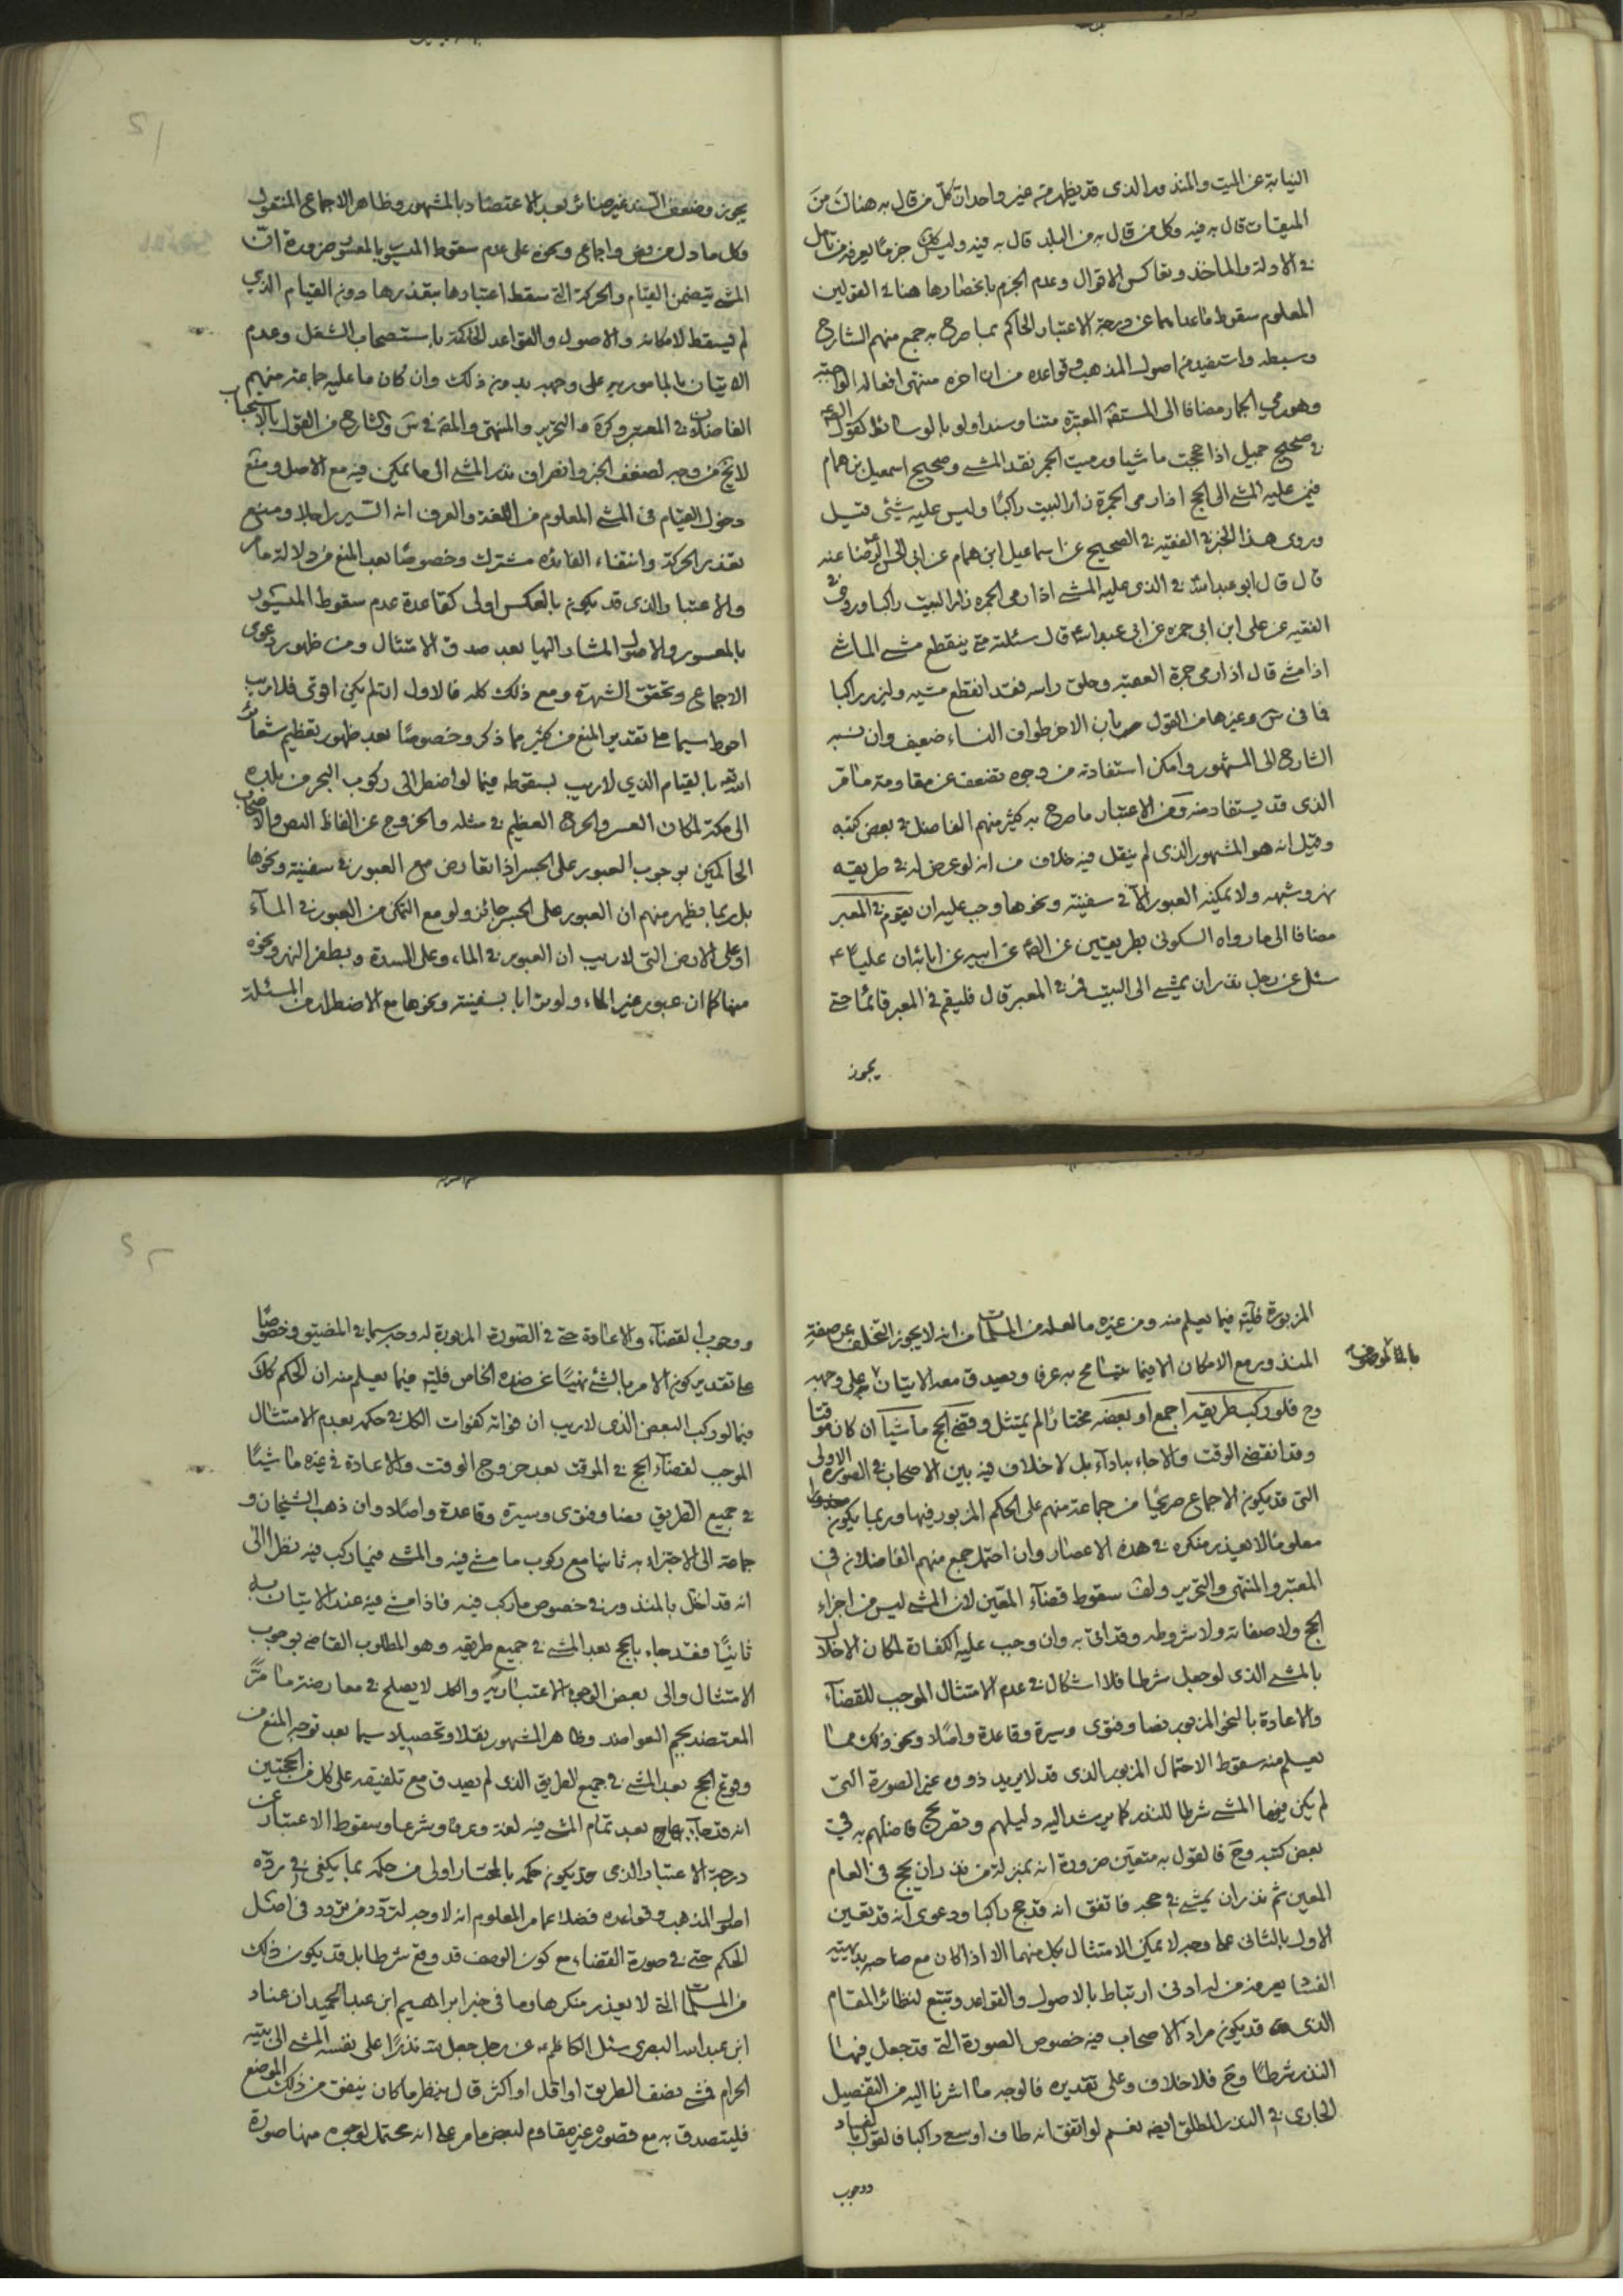 النيابة عن الميت والمنذور الذى قد يظهر من غير واحد ان كل من قال به هناك من
الميقات قال به فيه وكل من قال به من البلد قال به فيه وليكن جزمًا يعرفه من تأمل
فى الادلة والماخذ وتعاكس الاقوال وعدم الجزم بانحصارها هنا فى القولين
المعلوم سقوط ماعداهما عن درجة الاعتبار الحاكم بما صرح به جمع منهم الشارح
وسبطه واستفيد من اصول المذهب وقواعده من ان اخره منتهى افعاله الواجبة
وهو رمي الجمار مضافا الى المستفيضة المعتبرة متنا وسندا ولو بالوسائط كقول
فى صحيح جميل اذا حججت ماشيا ورميت الجمرة فقد انقطع المشى وصحيح اسمعيل بن همام
فيمن عليه المشى الى الحج اذا رمى الجمرة زار البيت راكبًا وليس عليه شئى قيل
وروى هذا الخبر فى الفقيه فى الصحيح عن اسماعيل ابن همام عن ابى الحسن الرضا عنه
قال قال ابو عبد الله فى الذى عليه المشى اذا رمى الجمرة زار البيت راكبا وروى فى
الفقيه عن على ابن ابى حمزه عن ابى عبد الله قال سئلته متى ينقطع مشى الماشى
اذا مشى قال اذا رمى جمرة العقبة وحلق راسه فقد انقطع مشيه وليزر راكبا
فما فى س وغيرها من القول بان الاخر طواف النساء ضعيف وان نسبه
الشارح الى المشهور وامكن استفادته من وجوه تضعف عن مقاومة ما مر
الذى قد يستفاد منه ومن الاعتبار ما صرح به كثير منهم الفاضل فى بعض كتبه
وقيل انه هو المشهور الذى لم ينقل فيه خلاف من انه لو عرض له فى طريقه
نهر وشبهه ولا يمكنه العبور الا فى سفينة ونحوها وجب عليه ان يقوم فى المعبر
مضافا الى ما رواه السكونى بطريقين عن الصّ عن ابيه عن ابائه ان عليًا ع
سئل عن رجل نذر ان يمشى الى البيت فمر فى المعبر قال فليقم فى المعبر قائمًا حتى
يجوز
يجوز وضعف السند غير ضائر بعد الاعتضاد بالمشهور وظاهر الاجماع المنقول
وكل ما دل من نص واجماع ونحوه على عدم سقوط الميسور بالمعسور ضرورة ان
المشى يتضمن القيام والحركة التى سقط اعتبارها بتعذرها دون القيام الذي
لم يسقط لامكانه والاصول والقواعد الحاكمة باستصحاب الشغل وعدم
الاتيان بالمامور به على وجهه بدون ذلك وان كان ما عليه جماعة منهم
الفاضلان فى المعتبر وكرة والتحرير والمنتهى والمقه فى س والشارح من القول بالاستحباب
لا يخ من وجه لضعف الخبر وانصراف نذر المشى الى ما يمكن فيه مع الاصل ومنع
دخول القيام فى المشى المعلوم من اللغة والعرف انه السير راجلا ومنع
تعذير الحركة وانتفاء الفائده مشترك وخصوصًا بعد المنع من دلالة مامر
والاعتبار الذى قد يكون بالعكس اولى كقاعدة عدم سقوط الميسور
بالمعسور والاصول المشار اليها بعد صدق الامتثال ومن ظهور دعوى
الاجماع وتحقق الشهرة ومع ذلك كله فالاول ان لم يكن اقوى فلا ريب
احوط سيما على تقدير المنع من كثير مما ذكر وخصوصًا بعد ظهور تعظيم شعائر
الله بالقيام الذي لاريب بسقوطه فيما لو اضطر الى ركوب البحر من بلده
الى مكة لمكان العسر والحرج العظيم فى مثله والخروج عن الفاظ النص والاصحاب
الحاكمين بوجوب العبور على الجسر اذا تعارض مع العبور فى سفينة ونحوها
بل ربما يظهر منهم ان العبور على الجسر جائز ولو مع التمكن من العبور فى المآء
او على الارض التى لاريب ان العبور فى الماء وعلى السدة وبطفر النهر ونحوه
منها كما ان عبور غير الماء ولو ترابا بسفينة ونحوها مع الاضطرار من المسئلة
المزبورة فليته فيما يعلم منه ومن غيره ما لعله من المسلمات من انه لا يجوز التخلف عن صفة
المنذور مع الامكان الا فيما يتسامح به عرفا ويصدق معه الاتيان على وجهه
وح فلو ركب طريقه اجمع او بعضه مختارًا لم يمتثل وقضى الحج ماشيًا ان كان موقتا
وقد انقضى الوقت والا جاء به اداء بل لا خلاف فيه بين الاصحاب فى الصورة الاولى
التى قد يكون الاجماع صريحًا من جماعة منهم على الحكم المزبور فيها وربما يكون
معلومًا لا يعذر منكره فى هذه الاعصار وان احتمل جمع منهم الفاضلان فى
المعتبر والمنتهى والتحرير ولف سقوط قضآء المعين لان المشى ليس من اجزاء
الحج ولا صفاته ولا شروطه وقد اتى به وان وجب عليه الكفارة لمكان الاخلال
بالمشى الذى لو جعل شرطا فلا اشكال فى عدم الامتثال الموجب للقضآء
والاعادة بالنحو المزبور نصا وفتوى وسيرة وقاعدة واصلا ونحو ذلك مما
يعلم منه سقوط الاحتمال المزبور الذى قد لا يريد ذووه غير الصورة التى
لم يكن فيها المشى شرطا للنذر كما يرشد اليه دليلهم وتصريح فاضلهم به فى
بعض كتبه وح فالقول به متعين ضرورة انه بمنزلة من نذر ان يحج فى العام
المعين ثم نذر ان يمشى فى حجه فاتفق انه قد حج راكبا ودعوى انه قد تعين
الاول بالثانى على وجه لا يمكن الامتثال بكل منهما الا اذا كان مع صاحبه بديهية
الفساد يعرفه من له ادنى ارتباط بالاصول والقواعد وتتبع لنظائر المقام
الذى قد يكون مراد الاصحاب فيه خصوص الصورة التى قد جعل فيها
النذر شرطًا وح فلا خلاف وعلى تقديره فالوجه ما اشرنا اليه من التفصيل
الجارى فى النذر المطلق ايضه نعم لو اتفق انه طاف او سعى راكبا فالقول بالفساد
ووجوب
ووجوب القضآء والاعادة حتى فى الصورة المزبورة له وجه سيما فى المضيق وخصوصًا
على تقدير كون الامر بالشئ نهيًا عن ضده الخاص فليته فيما يعلم منه ان الحكم كذلك
فيما لو ركب البعض الذى لاريب ان فواته كفوات الكل فى حكمه بعدم الامتثال
الموجب لقضآء الحج فى الموقت بعد خروج الوقت والاعادة فى غيره ماشيًا
فى جميع الطريق نصا وفتوى وسيرة وقاعدة واصلا وان ذهب الشيخان و
جماعة الى الاجتزاء به ثانيا مع ركوب ما مشى فيه والمشى فيما ركب فيه نظرا الى
انه قد اخل بالمنذور فى خصوص ما ركب فيه فاذا مشى فيه عند الاتيان به
ثانيًا فقد جاء بالحج بعد المشى فى جميع طريقه وهو المطلوب القاضى بوجوب
الامتثال والى بعض الوجوه الاعتباريه والكل لا يصلح فى معارضة ما مر
المعتضد بجم العواضد وظاهر المشهور نقلا وتحصيلا سيما بعد توجه المنع من
وقوع الحج بعد المشى فى جميع الطريق الذى لم يصدق مع تلفيقه على كل من الحجتين
انه قد جاء به بعد تمام المشى فيه لغة وعرفا وشرعا وسقوط الاعتبار عن
درجة الاعتبار الذى قد يكون حكمه بالمختار اولى من حكمه بما يكفى فى رده
اصول المذهب وقواعده فضلا عما مر المعلوم انه لا وجه لتردد من تردد فى اصل
الحكم حتى فى صورة القضاء مع كون الوصف قد وقع شرطا بل قد يكون ذلك
من المسلمات التى لا يعذر منكرها وما فى خبر ابراهيم ابن عبد الحميد ان عباد
ابن عبد الله البصرى سئل الكاظم عن رجل جعل لله نذرًا على نفسه المشى الى بيته
الحرام فمشى نصف الطريق او اقل او اكثر قال ينظر ما كان ينفق من ذلك الموضع
فليتصدق به مع قصوره عن مقاوم لبعض ما مر على انه محتمل لوجوه منها صورة